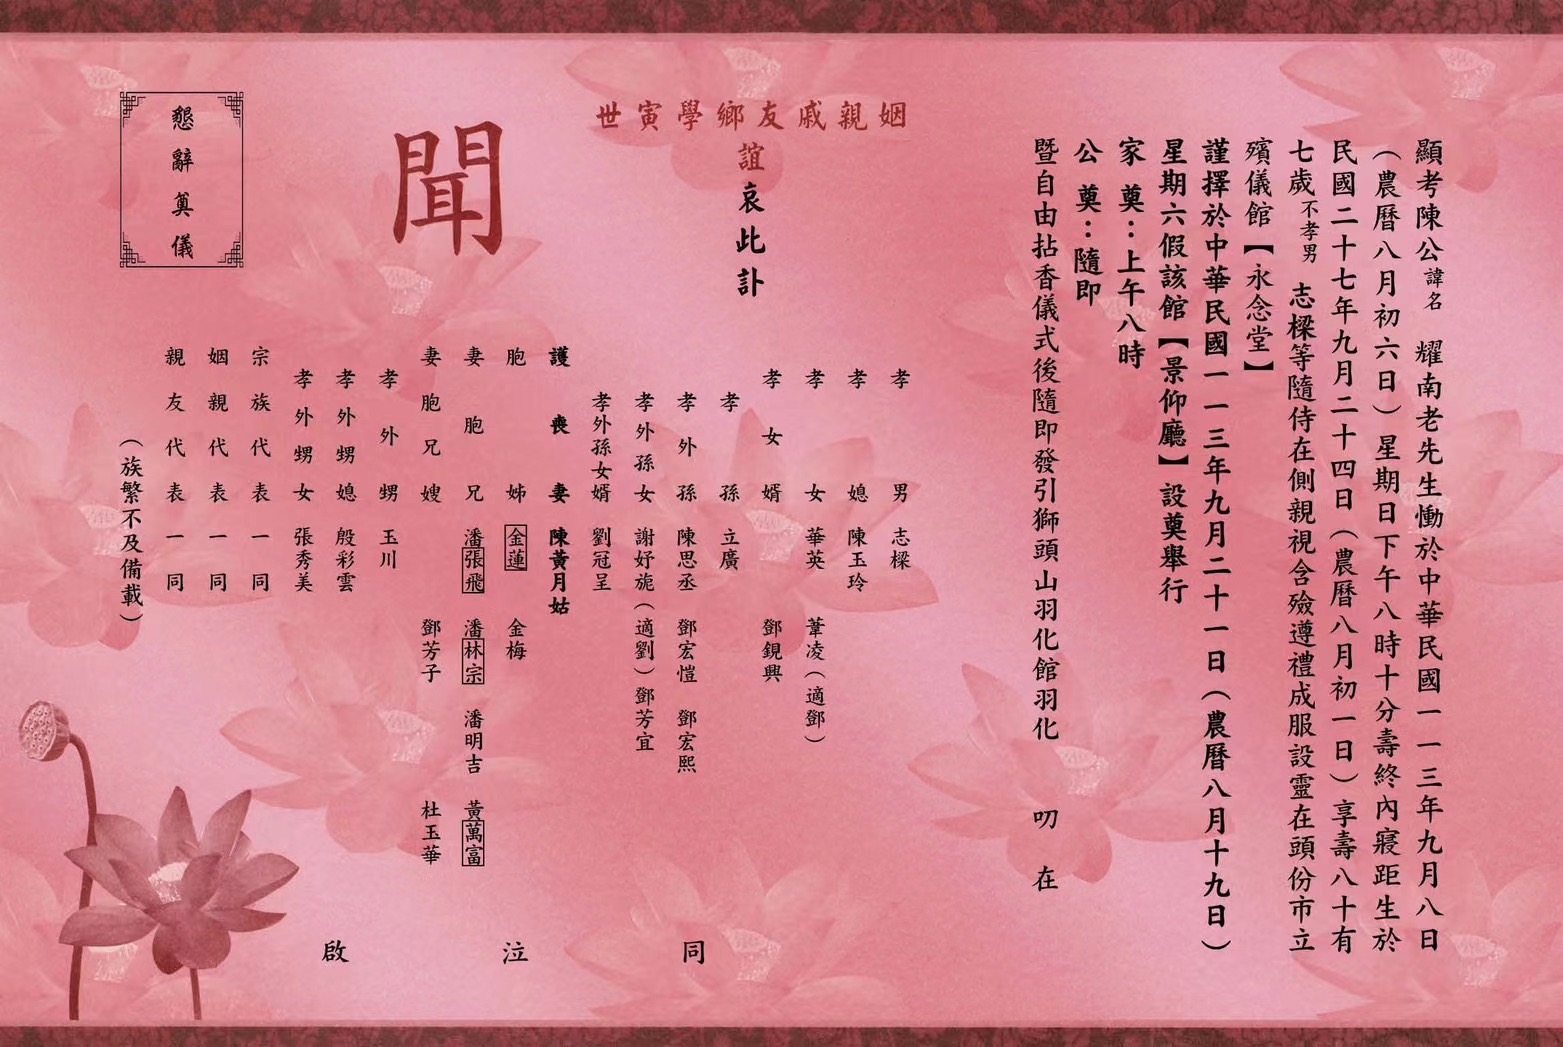 顯考陳公諱名 耀南老先生慟於中華民國一一三年九月八日
（農曆八月初六日）星期日下午八時十分壽終內寢距生於
民國二十七年九月二十四日（農曆八月初一日）享壽八十有
七歲不孝男 志樑等隨侍在側親視含殮遵禮成服設靈在頭份市立
殯儀館【永念堂】
謹擇於中華民國一一三年九月二十一日（農曆八月十九日）
星期六假該館【景仰廳】設奠舉行
家 奠：上午八時
公 奠：隨即
暨自由拈香儀式後隨即發引獅頭山羽化館羽化 叨 在
世寅學鄉友戚親姻
誼哀此訃
聞
孝 男 志樑
孝 媳 陳玉玲
孝 女 華英 葦凌（適鄧）
孝 女 婿 鄧鋧興
孝 孫 立廣
孝 外 孫 陳思丞 鄧宏愷 鄧宏熙
孝 外 孫 女 謝妤旎（適劉）鄧芳宜
孝外孫女婿 劉冠呈
護 喪 妻 陳黃月姑
胞 姊 金蓮 金梅
妻 胞 兄 潘張飛 潘林宗 潘明吉 黃萬富
妻 胞 兄 嫂 鄧芳子 杜玉華
孝 外 甥 玉川
孝 外 甥 媳 殷彩雲
孝 外 甥 女 張秀美
宗族代表一同
姻親代表一同
親友代表一同
（族繁不及備載）
同 泣 啟
懇辭奠儀